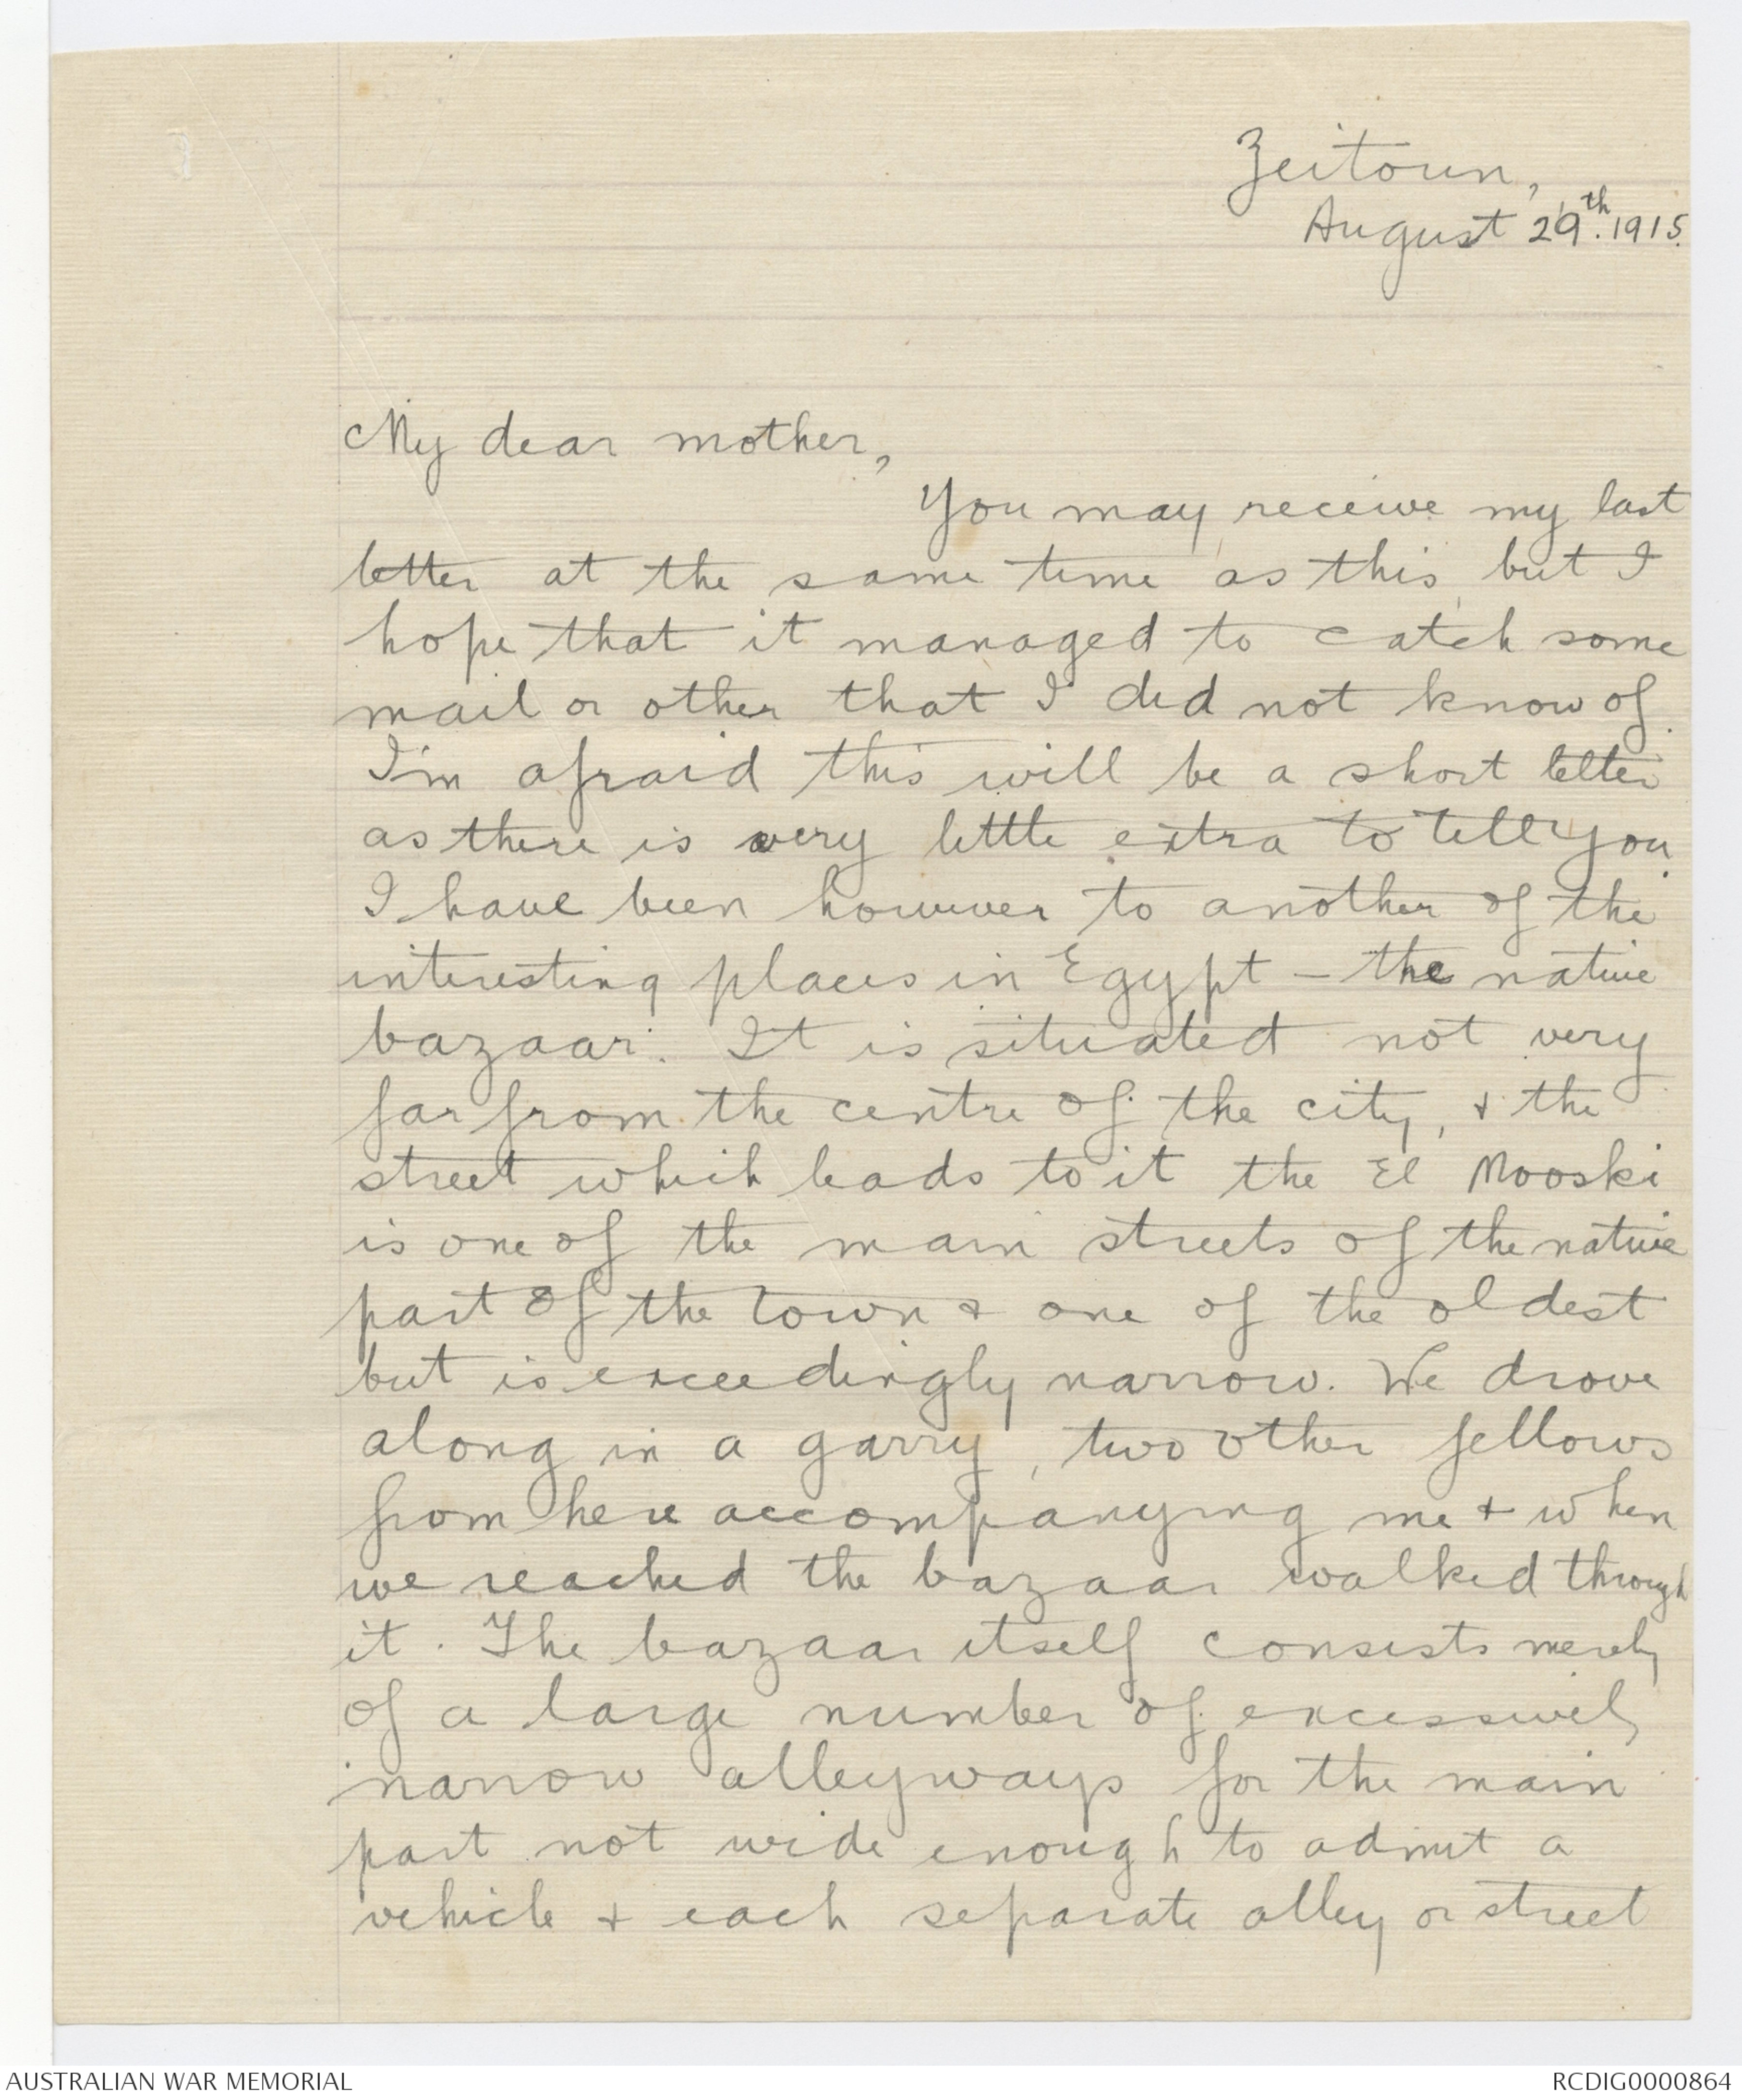 Zeitoun,
August 29th. 1915.
My dear mother,
You may receive my last
letter at the same time as this, but I
hope that it managed to catch some
mail or other that I did not know of.
I'm afraid this will be a short letter
as there is very little extra to tell you.
I have been however to another of the
interesting places in Egypt - the native
bazaar. It is situated not very
far from the centre of the city, & the
street which leads to it the El Mooski
is one of the main streets of the native
part of the town & one of the oldest
but is exceedingly narrow. We drove
along in a garry, two other fellows
from here accompanying me & when
we reached the bazaar walked through
it. The bazaar itself consists merely
of a large number of excessively
narrow alleyways for the main
part not wide enough to admit a
vehicle & each separate alley or street
AUSTRALIAN WAR MEMORIAL
RCDIG0000864